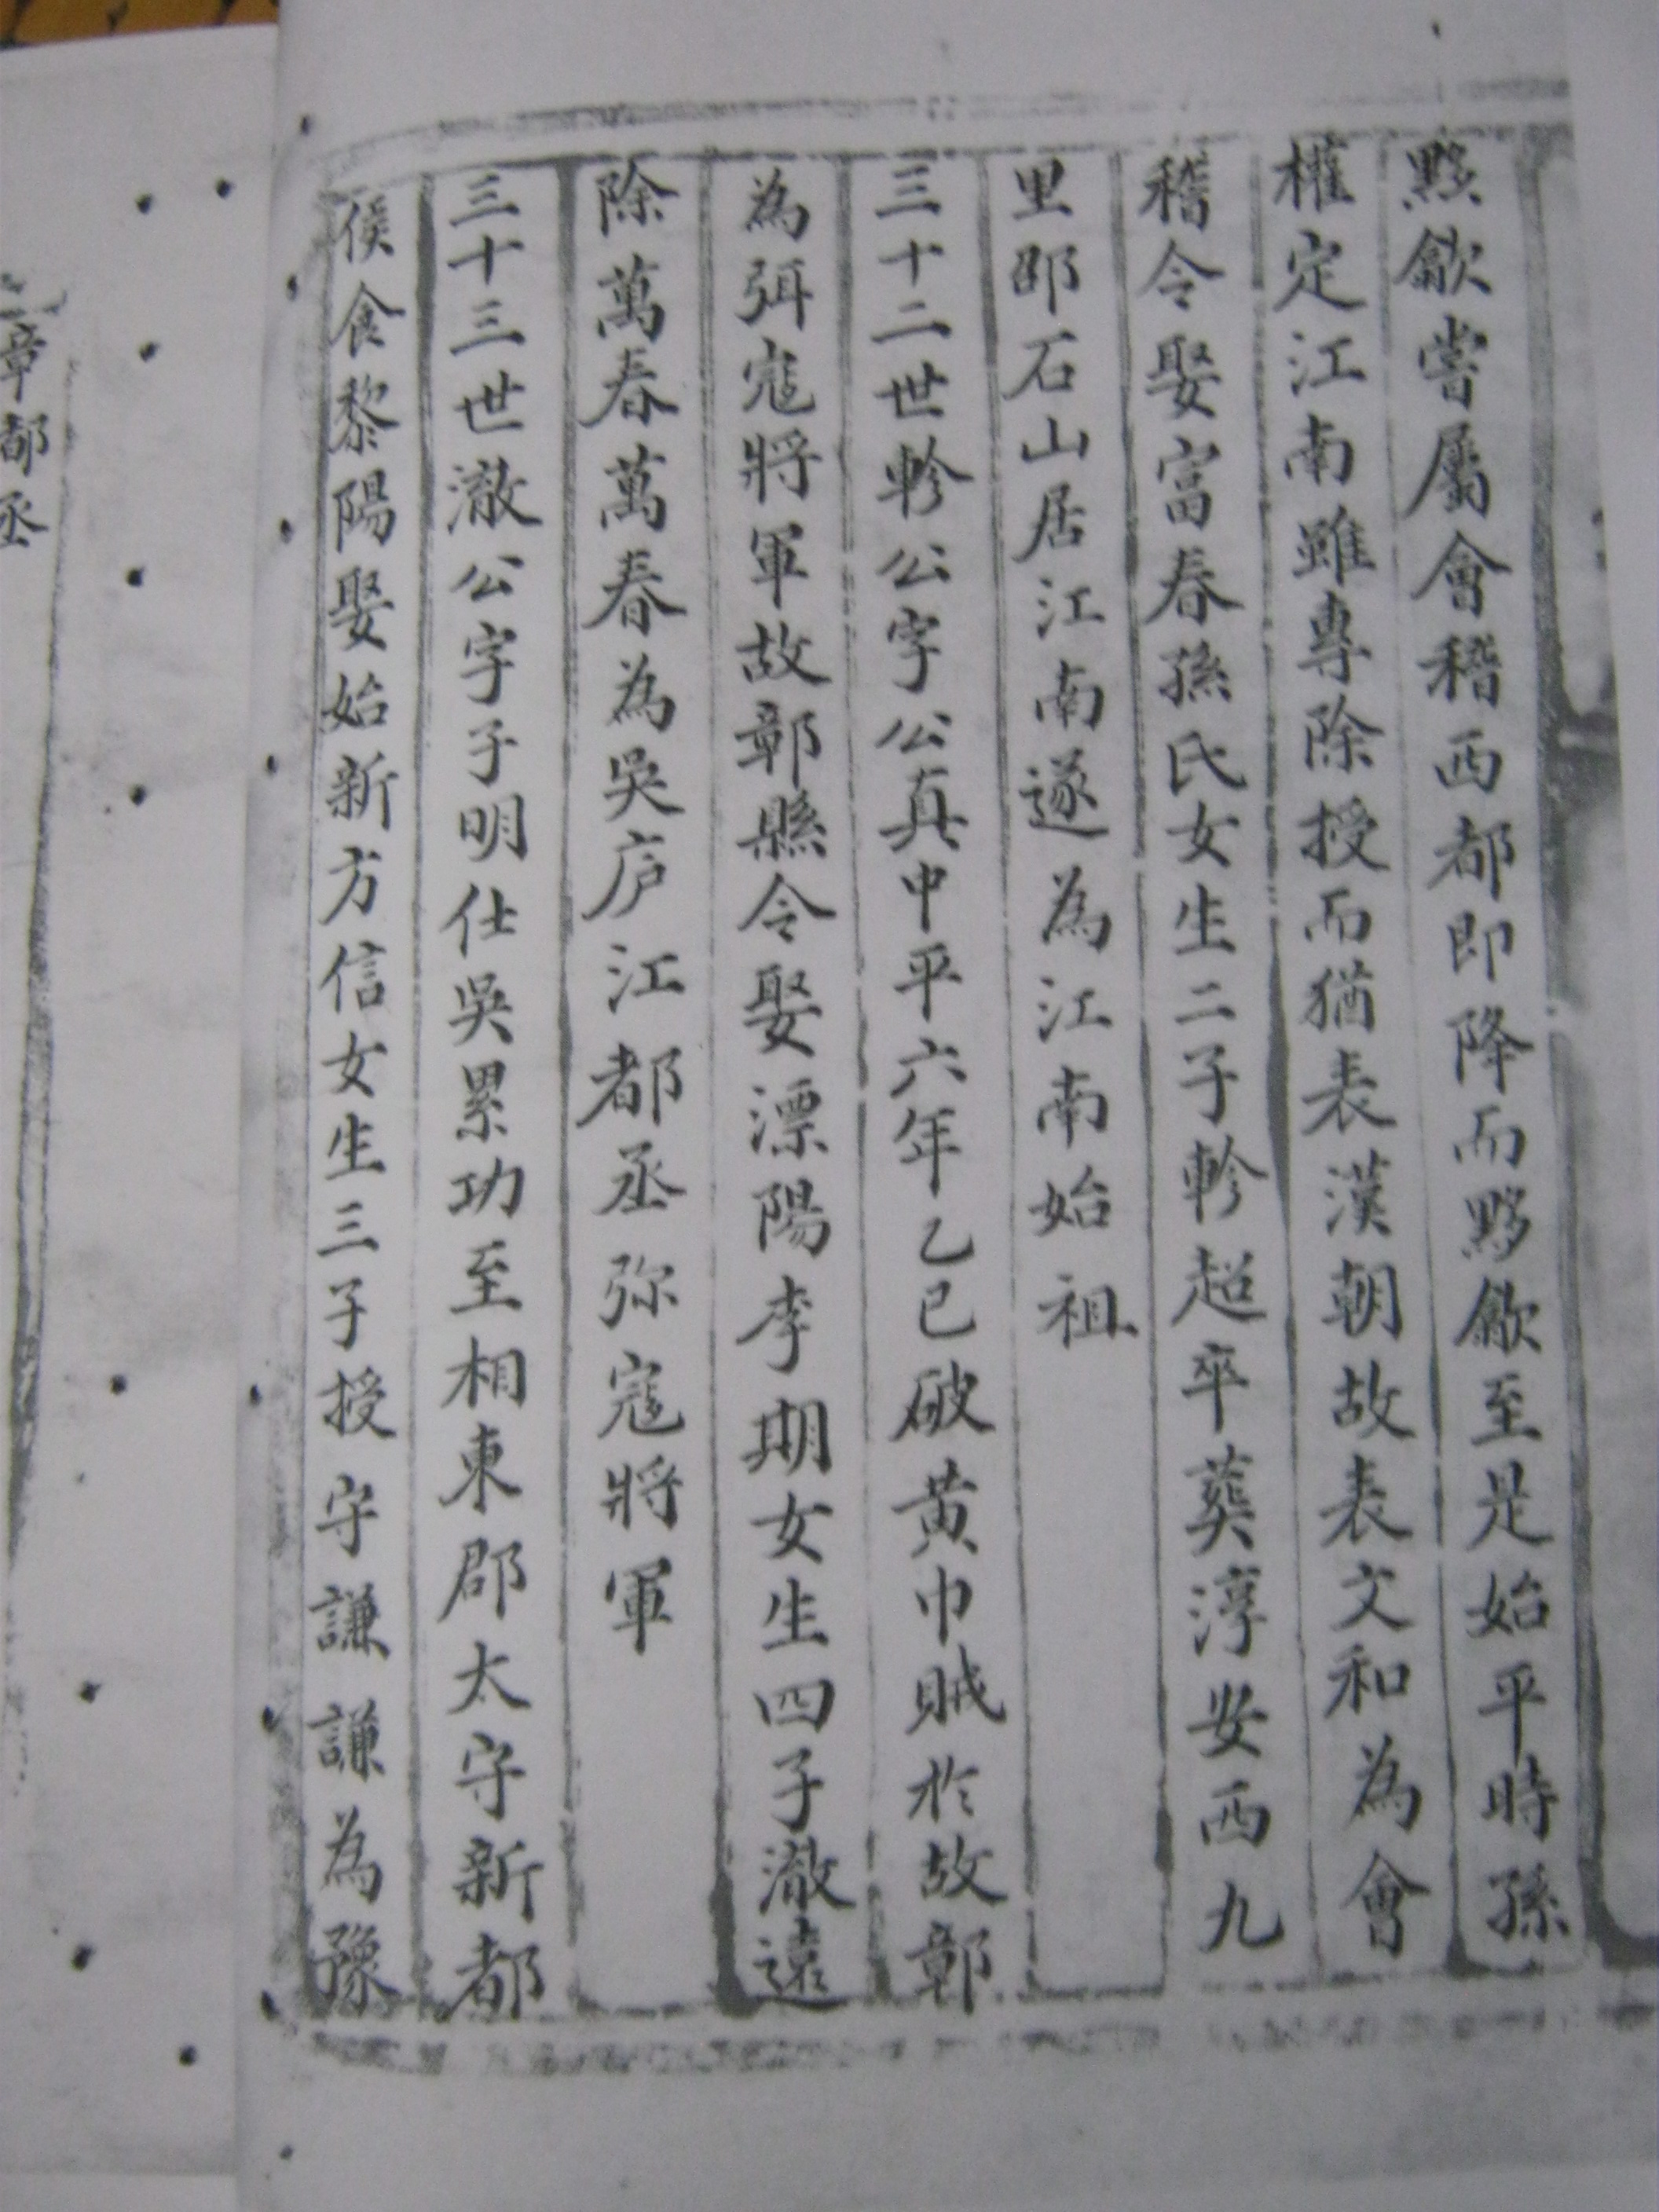 黟歙嘗屬會稽西都即降而黟歙至是始平時孫
權定江南雖專除授而猶表漢朝故表文和為會
稽令娶富春孫氏女生二子軫超卒葬淳安西九
里邵石山居江南遂為江南始祖
三十二世軫公字公真中平六年乙巳破黃巾賊於故鄣
為弭寇將軍故鄣縣令娶漂陽李期女生四子澈遠
除萬春萬春為吳庐江都丞弥寇將軍
三十三世澈公字子明仕吳累功至相東郡太守新都
侯食黎陽娶始新方信女生三子授守謙謙為豫
章都丞